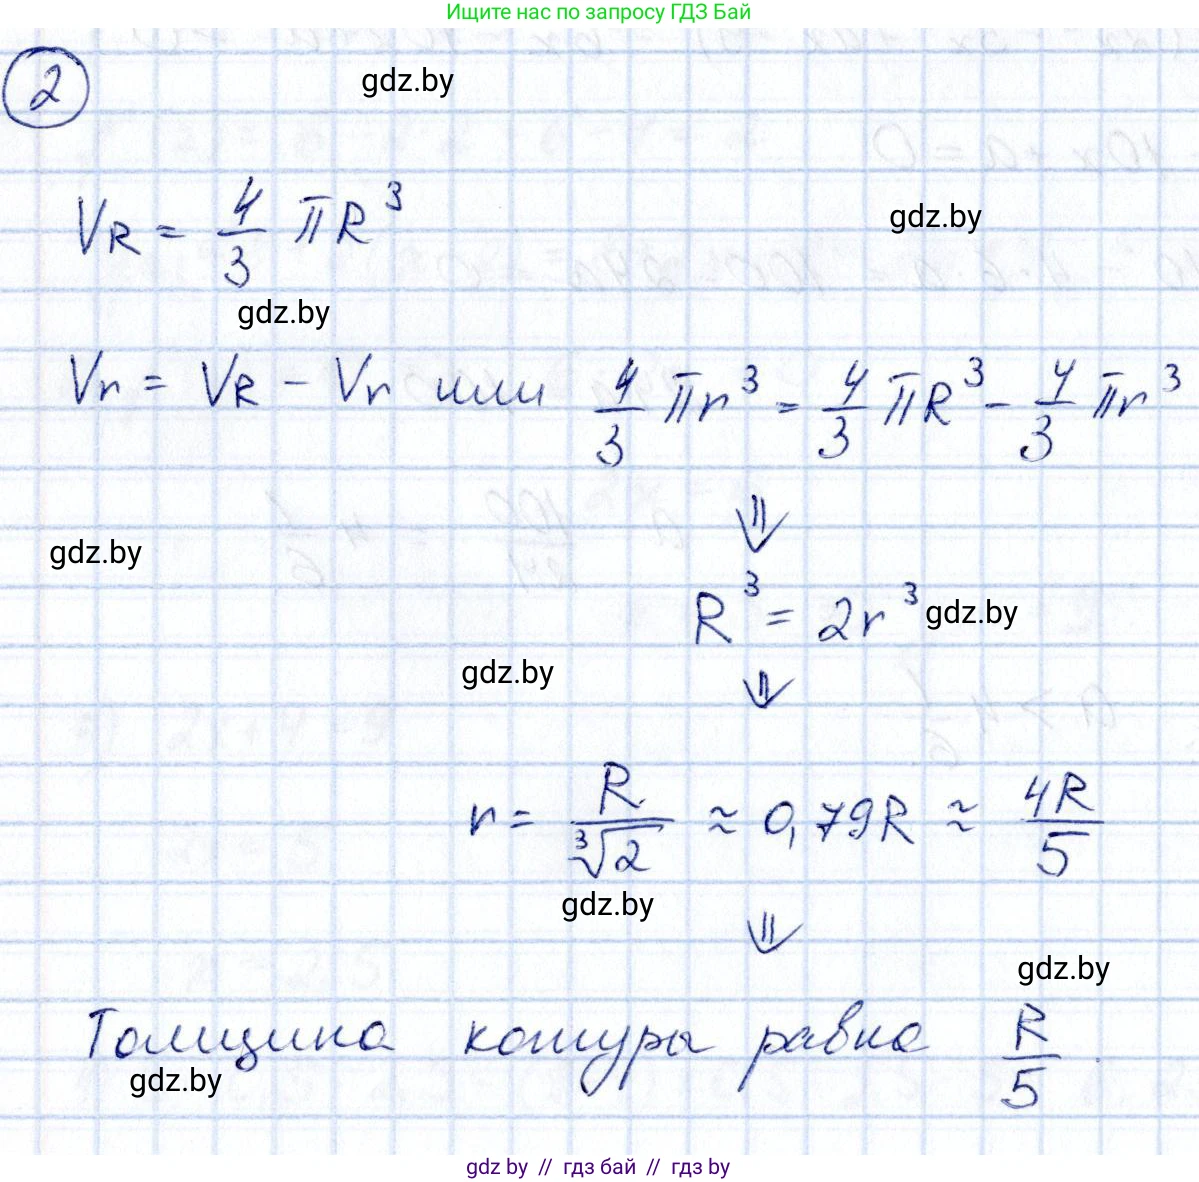 Ищите нас по запросу ГДЗ Бай
2
gdz.by
V_R = 4/3 πR³
gdz.by
gdz.by
V_r = V_R − V_r или 4/3 πr³ = 4/3 πR³ − 4/3 πr³
⇓
gdz.by
R³ = 2r³
gdz.by
gdz.by
⇓
r = R/∛2 ≈ 0,79R ≈ 4R/5
gdz.by
⇓
gdz.by
Толщина кожуры равна R/5.
gdz.by
gdz by // гдз бай // гдз by